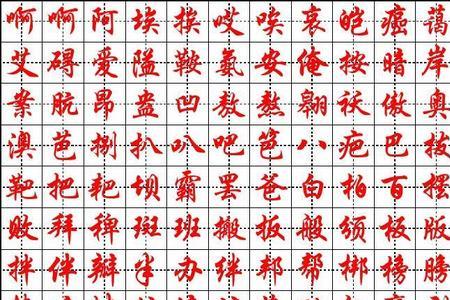 啊啊阿埃挨哎唉哀皑癌蔼
艾碍爱隘鞍氨安俺按暗岸
案肮昂盎凹敖熬翱袄傲奥
澳芭捌扒叭吧笆八疤巴拔
靶把耙坝霸罢爸白柏百摆
败拜稗斑班搬扳般颁板版
拌伴瓣半办绊邦帮梆榜膀